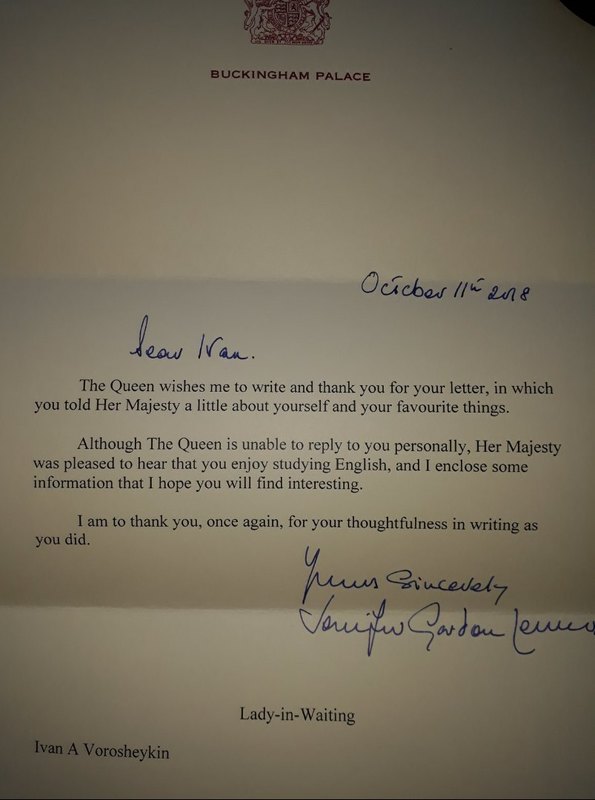 BUCKINGHAM PALACE
October 11th 2018
Dear Ivan.
The Queen wishes me to write and thank you for your letter, in which
you told Her Majesty a little about yourself and your favourite things.
Although The Queen is unable to reply to you personally, Her Majesty
was pleased to hear that you enjoy studying English, and I enclose some
information that I hope you will find interesting.
I am to thank you, once again, for your thoughtfulness in writing as
you did.
Yours Sincerely
Jennifer Gordon
Lady-in-Waiting
Ivan A Vorosheykin